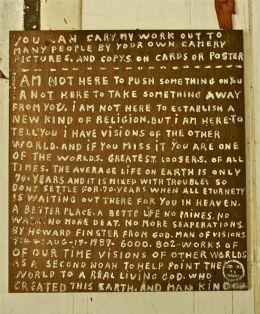 YOU CAN CARY MY WORK OUT TO
MANY PEOPLE BY YOUR OWN CAMERY
PICTURES. AND COPYS. ON CARDS OR POSTER
I AM NOT HERE TO PUSH SOMETHING ON YOU
A NOT HERE TO TAKE SOMETHING AWAY
FROM YOU. I AM NOT HERE TO ESTABLISH A
NEW KIND OF RELIGION. BUT I AM HERE TO
TELL YOU I HAVE VISIONS OF THE OTHER
WORLD. AND IF YOU MISS IT YOU ARE ONE
OF THE WORLDS. GREATEST. LOOSERS. OF ALL
TIMES. THE AVERAGE LIFE ON EARTH IS ONLY
70 YEARS AND IT IS MIXED WITH TROUBLES SO
DONT SETTLE FOR 70 YEARS WHEN ALL ETURNETY
IS WAITING OUT THERE FOR YOU IN HEAVEN.
A BETTER PLACE. A BETTE LIFE NO PAINES. NO
WARS. NO MORE DEAT. NO MORE SEAPERATIONS.
BY HOWARD FINSTER FROM GOD. MAN OF VISIONS
AUG-19-1987. 6000. 802 WORKS OF
OF OUR TIME VISIONS OF OTHER WORLDS
AS A SECOND NOAH TO HELP POINT THE
WORLD TO A REAL LIVING GOD. WHO
CREATED THIS EARTH. AND MAN KIND